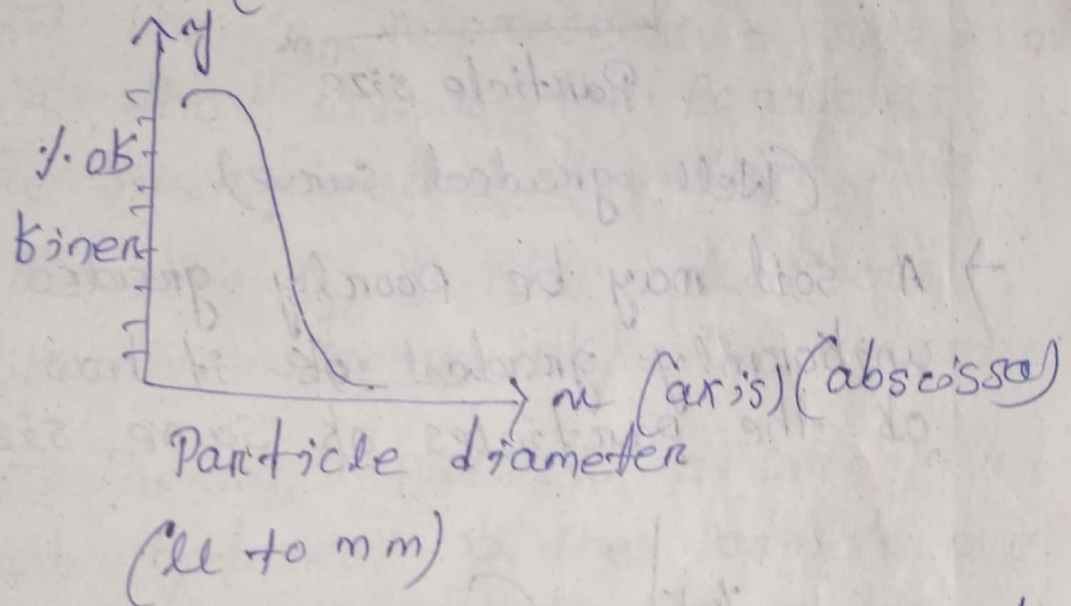 y
% of
finer
x (axis) (abscissa)
Particle diameter
(μ to mm)